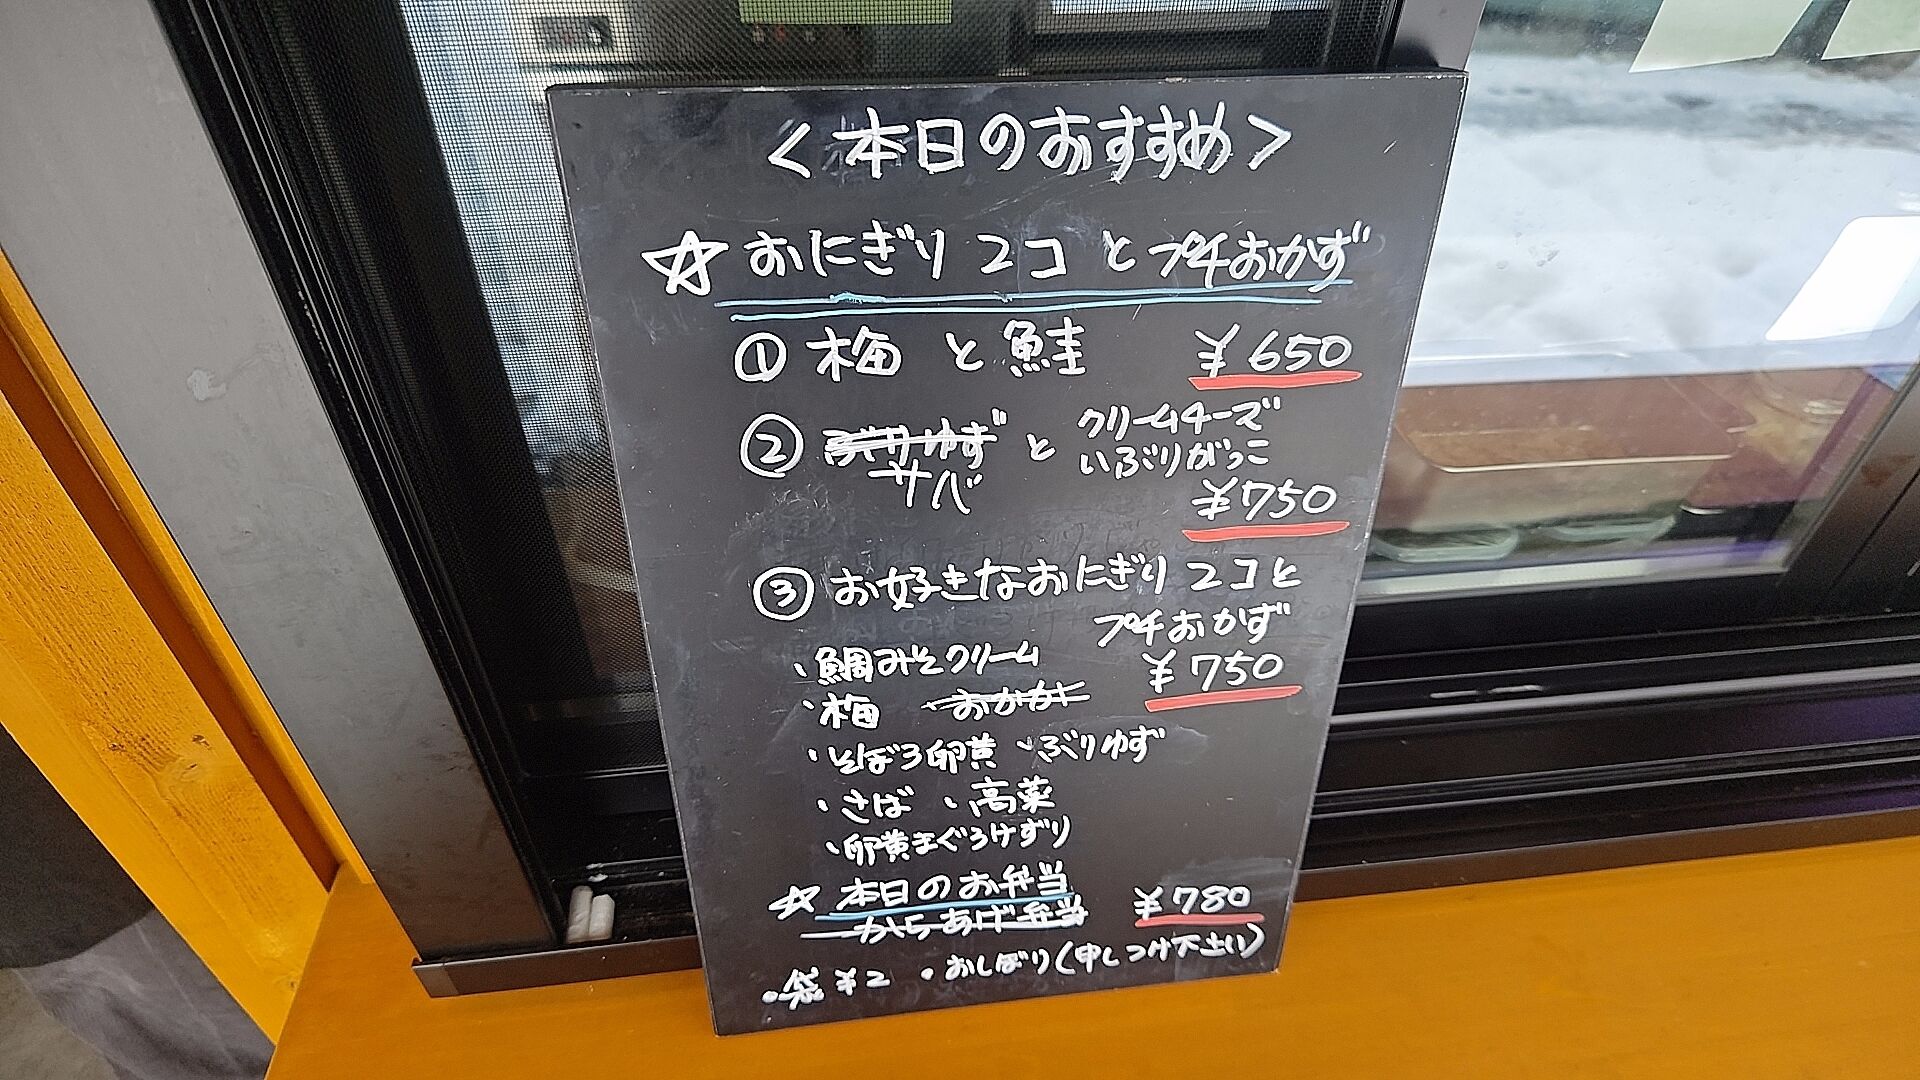 <本日のおすすめ>
☆おにぎり2コとプチおかず
① 梅と鮭 ¥650
② ぶりゆず サバ と クリームチーズ いぶりがっこ
¥750
③ お好きなおにぎり2コと
プチおかず
・鯛みそクリーム ¥750
・梅 おかかに
・そぼろ卵黄 ・ぶりゆず
・さば ・高菜
・卵黄まぐろけずり
☆本日のお弁当 ¥780
からあげ弁当
・袋¥2 ・おしぼり(申しつけ下さい)